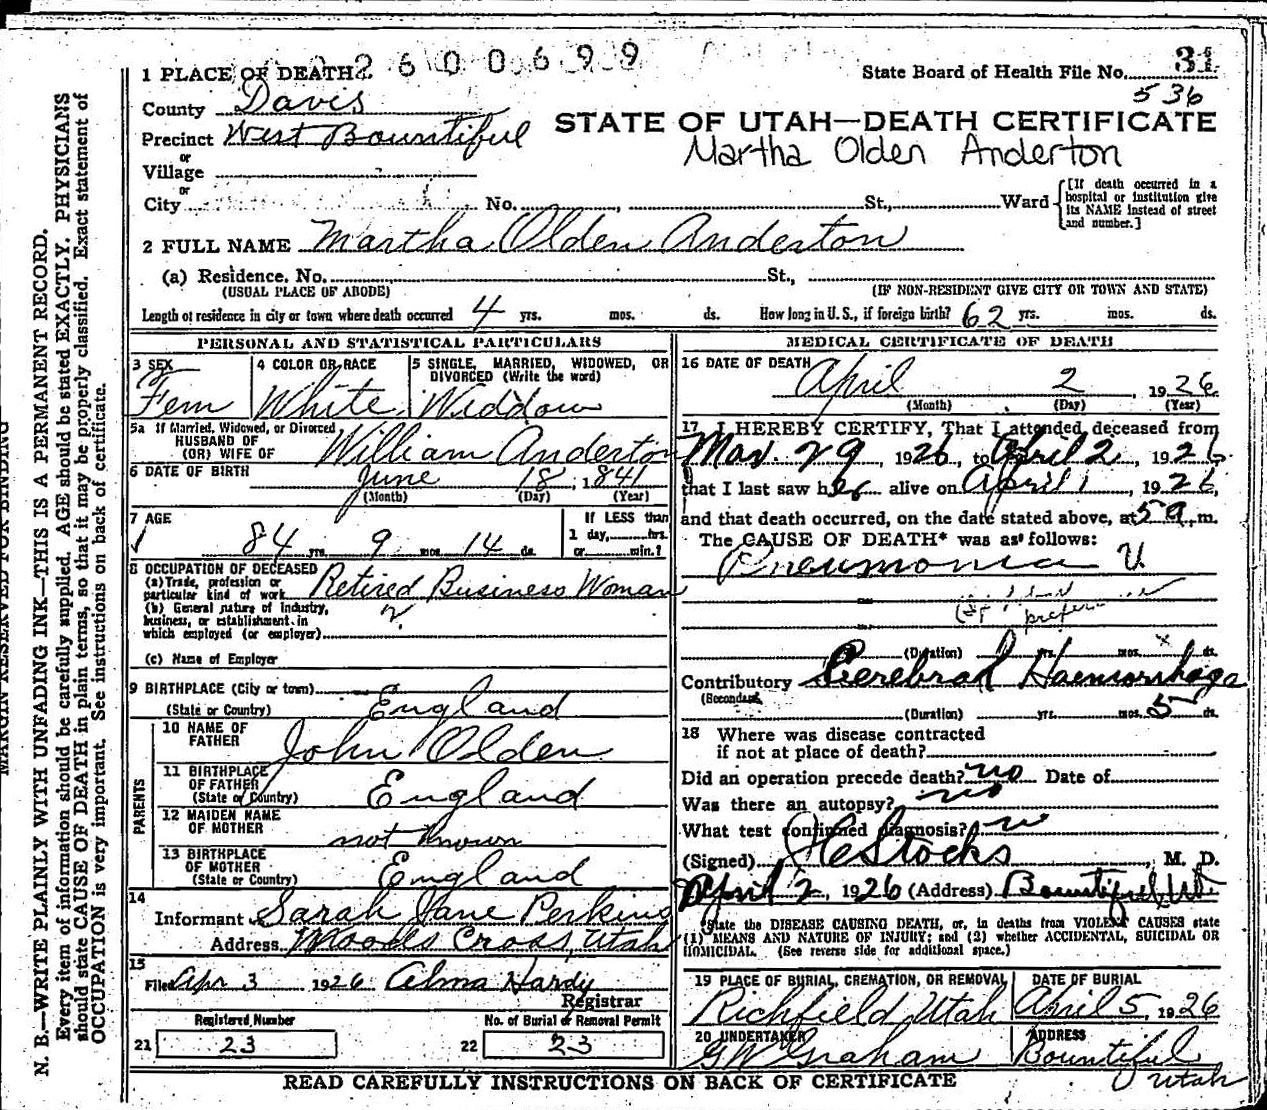 2600699
31
1 PLACE OF DEATH
State Board of Health File No.
536
County Davis
Precinct West Bountiful
STATE OF UTAH—DEATH CERTIFICATE
Martha Olden Anderton
or
Village
or
City No. , St., Ward
[If death occurred in a hospital or institution give its NAME instead of street and number.]
2 FULL NAME Martha Olden Anderton
(a) Residence. No. St.,
(USUAL PLACE OF ABODE) (IF NON-RESIDENT GIVE CITY OR TOWN AND STATE)
Length of residence in city or town where death occurred 4 yrs. mos. ds. How long in U. S., if foreign birth? 62 yrs. mos. ds.
PERSONAL AND STATISTICAL PARTICULARS
3 SEX
Fem
4 COLOR OR RACE
White
5 SINGLE, MARRIED, WIDOWED, OR DIVORCED (Write the word)
Widdow
5a If Married, Widowed, or Divorced
HUSBAND OF
(OR) WIFE OF William Anderton
6 DATE OF BIRTH June 18, 1841
(Month) (Day) (Year)
7 AGE
84 yrs. 9 mos. 14 ds.
If LESS than
1 day, hrs.
or min.?
8 OCCUPATION OF DECEASED
(a) Trade, profession or
particular kind of work Retired Business Woman
(b) General nature of Industry,
business, or establishment in
which employed (or employer)
(c) Name of Employer
9 BIRTHPLACE (City or town)
(State or Country) England
PARENTS
10 NAME OF
FATHER John Olden
11 BIRTHPLACE
OF FATHER
(State or Country) England
12 MAIDEN NAME
OF MOTHER not known
13 BIRTHPLACE
OF MOTHER
(State or Country) England
14
Informant Sarah Jane Perkins
Address Woods Cross, Utah
15
Filed Apr 3 1926 Alma Hardy
Registrar
Registered Number
21 23
No. of Burial or Removal Permit
22 23
MEDICAL CERTIFICATE OF DEATH
16 DATE OF DEATH April 2 1926
(Month) (Day) (Year)
17 I HEREBY CERTIFY, That I attended deceased from
Mar. 29, 1926, to April 2, 1926
that I last saw her alive on April 1, 1926,
and that death occurred, on the date stated above, at 5 a. m.
The CAUSE OF DEATH* was as follows:
Pneumonia
(Duration) yrs. mos. ds.
Contributory Cerebral Haemorrhage
(Secondary)
(Duration) yrs. mos. 5 ds.
18 Where was disease contracted
if not at place of death?
Did an operation precede death? no Date of
Was there an autopsy? no
What test confirmed diagnosis? no
(Signed) Stocks, M. D.
April 2, 1926 (Address) Bountiful, Ut.
*State the DISEASE CAUSING DEATH, or, in deaths from VIOLENT CAUSES state
(1) MEANS AND NATURE OF INJURY; and (2) whether ACCIDENTAL, SUICIDAL OR
HOMICIDAL. (See reverse side for additional space.)
19 PLACE OF BURIAL, CREMATION, OR REMOVAL
Richfield Utah
DATE OF BURIAL
April 5, 1926
20 UNDERTAKER
G W Graham
ADDRESS
Bountiful
Utah
READ CAREFULLY INSTRUCTIONS ON BACK OF CERTIFICATE
MARGIN RESERVED FOR BINDING
N. B.—WRITE PLAINLY WITH UNFADING INK—THIS IS A PERMANENT RECORD.
Every item of information should be carefully supplied. AGE should be stated EXACTLY. PHYSICIANS
should state CAUSE OF DEATH in plain terms, so that it may be properly classified. Exact statement of
OCCUPATION is very important. See instructions on back of certificate.